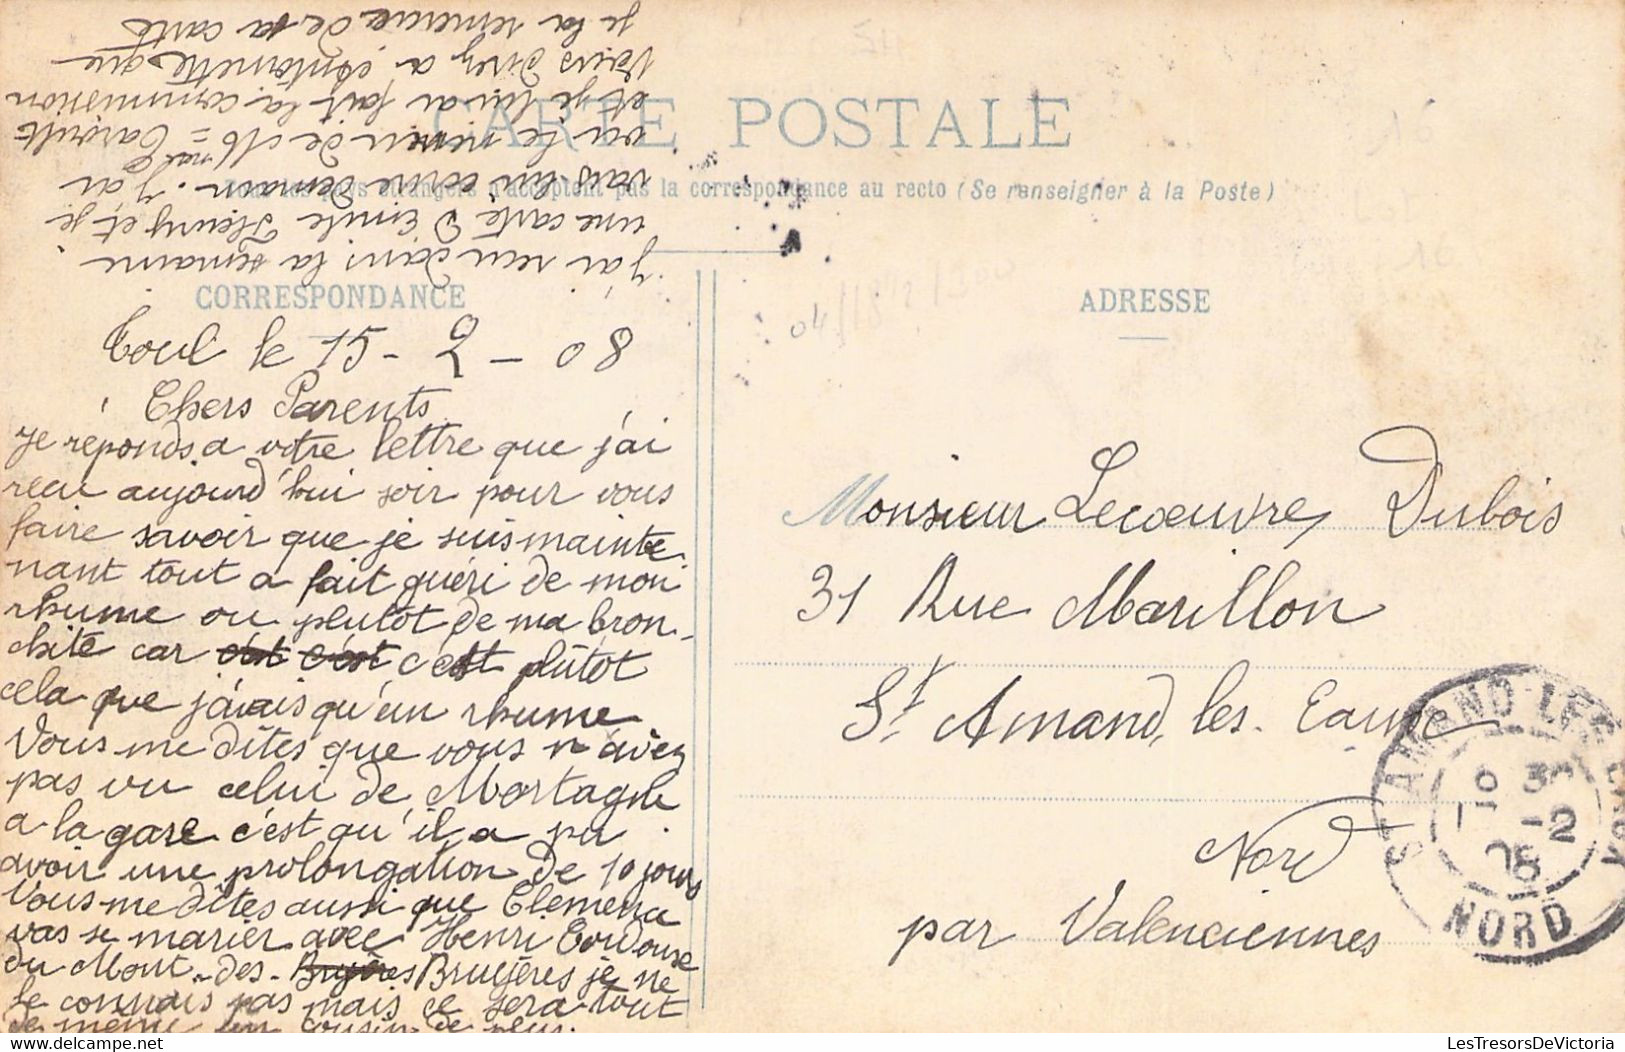 CARTE POSTALE
Tous les pays étrangers n'acceptent pas la correspondance au recto (Se renseigner à la Poste)
CORRESPONDANCE
ADRESSE
Toul le 15 - 2 - 08
Chers Parents
je réponds a votre lettre que j'ai
recu aujourd'hui soir pour vous
faire savoir que je suis mainte
nant tout a fait guéri de mon
rhume ou plutot de ma bron-
chite car c'est c'est c'est plûtot
cela que j'avais qu'un rhume
Vous me dites que vous n'avez
pas vu celui de Mortagne
a la gare c'est qu'il a pu
avoir une prolongation de 10 jours
Vous me dites aussi que Clemence
vas se marier avec Henri
du Mont-des-Bruyères Bruyères je ne
le connais pas mais ce sera tout
de même un cousin de plus.
j'ai recu dans la semaine
une carte d'Emile Fleury et je
vais lui ecrire demain. J'ai
vu le neveu de Mb =
et je lui ai fait la commission
Vous direz a Antoinette que
je la remercie de sa carte
Monsieur Lecoeuvre Dubois
31 Rue Marillon
St Amand les Eaux
Nord
par Valenciennes
ST AMAND-LES-EAUX
-2
NORD
16
LesTresorsDeVictoria.com